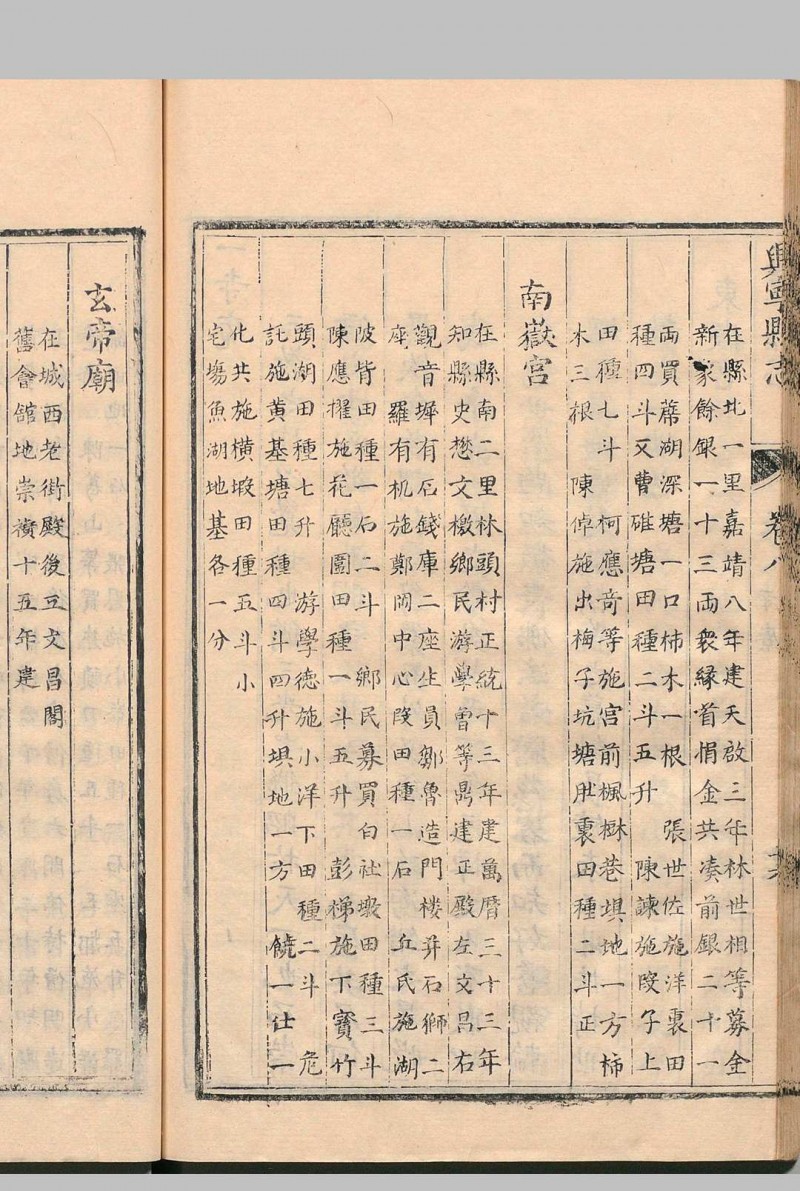 興寧縣志 卷八
在縣北一里嘉靖八年建天啟三年林世相等募金
新家餘銀一十三両衆緣首捐金共凑前銀二十一
両買蓆湖深塘一口柿木一根 張世佐施洋裏田
種四斗又曹碓塘田種二斗五升 陳諫施陂子上
田種七斗 柯應奇等施宮前楓樹巷垻地一方柿
木三根 陳倬施出梅子坑塘肚裏田種二斗正
南嶽宮
在縣南二里林頭村正統十三年建萬曆三十三年
知縣史懋文檄鄉民游學曾等鼎建正殿左文昌右
觀音墀有石錢庫二座生員鄒魯造門楼并石獅二
座 羅有机施鄭岡中心陂田種一石 丘氏施湖
陂背田種一石二斗 鄉民募買白社墩田種三斗
陳應擢施花廳園田種一斗五升 彭梯施下寳竹
頭湖田種七升 游學德施小洋下田種二斗 危
託施黄基塘田種四斗四升垻地一方 饒一仕一
化共施橫塅田種五斗小
宅塲魚湖地基各一分
玄帝廟
在城西老街殿後立文昌閣
舊會舘地崇禎十五年建